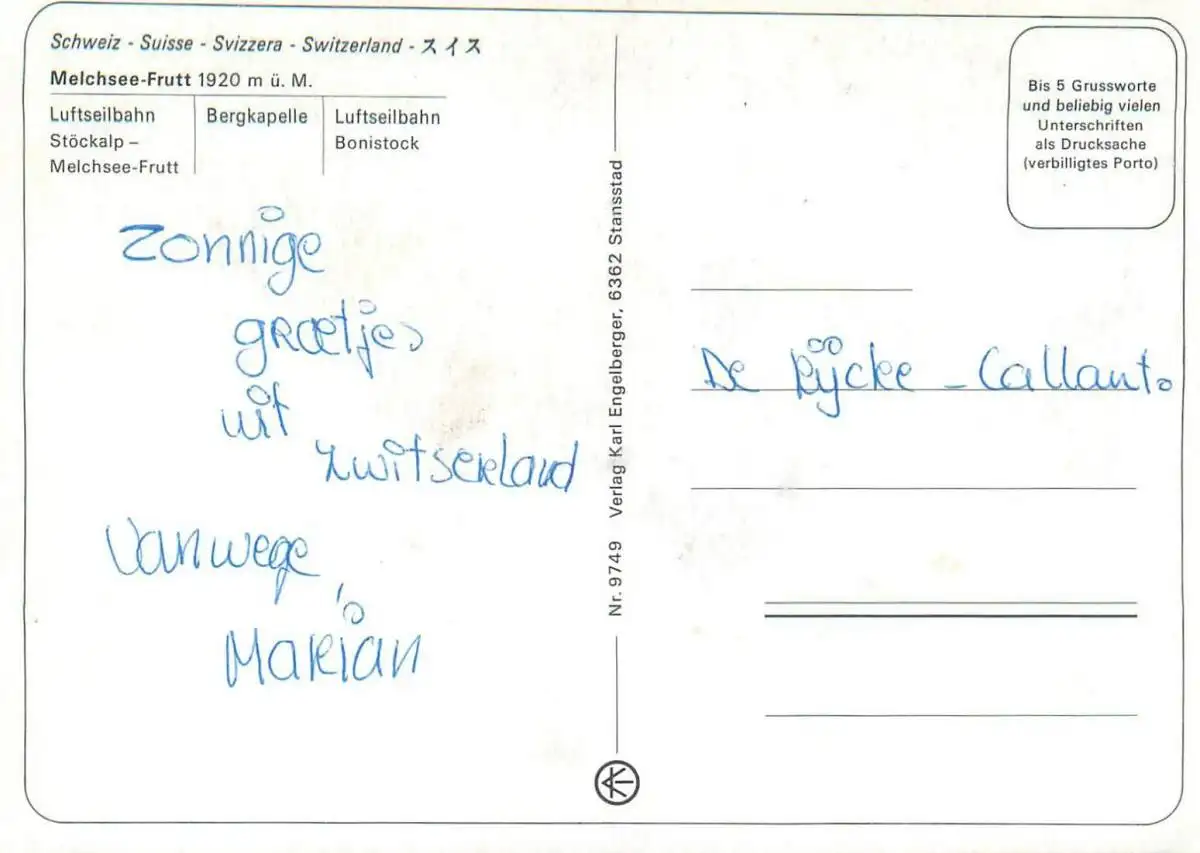 Schweiz - Suisse - Svizzera - Switzerland - スイス
Melchsee-Frutt 1920 m ü. M.
Luftseilbahn
Stöckalp –
Melchsee-Frutt
Bergkapelle
Luftseilbahn
Bonistock
zonnige
groetjes
uit
zwitserland
Vanwege,
Marian
Nr. 9749 Verlag Karl Engelberger, 6362 Stansstad
Bis 5 Grussworte
und beliebig vielen
Unterschriften
als Drucksache
(verbilligtes Porto)
De Rijcke - Callant.